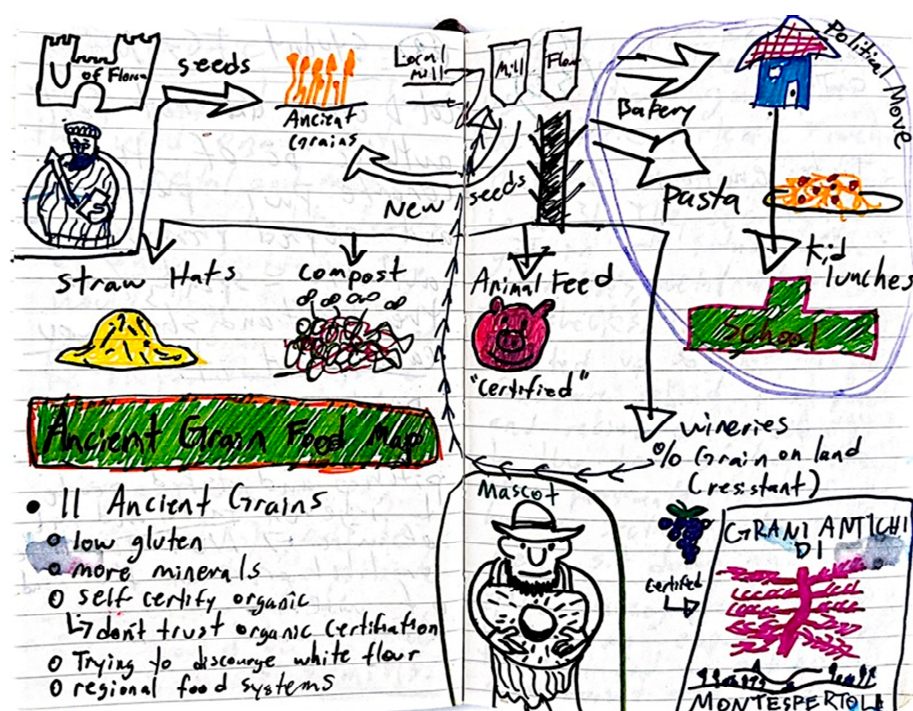 U of Flore
seeds
Ancient
Grains
Local
Mill
Mill
Flour
Bakery
Political Move
New seeds
Pasta
Kid
lunches
School
Straw Hats
Compost
Animal Feed
"Certified"
Ancient Grain Food Map
wineries
% Grain on land
(resistant)
• 11 Ancient Grains
o low gluten
o more minerals
o self certify organic
↳ don't trust organic certifiation
o Trying to discourge white flour
o regional food systems
Mascot
Certified
GRANI ANTICHI
DI
MONTESPERTOLI